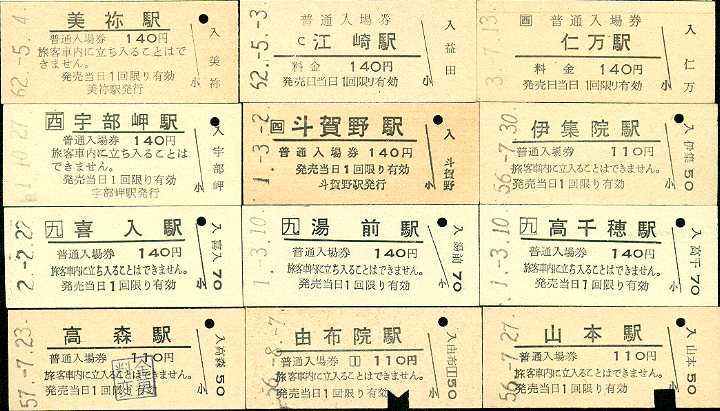 美祢駅
普通入場券 140円
旅客車内に立ち入ることはで
きません。
発売当日1回限り有効
美祢駅発行
入 美祢
小
62.-5.-4
普通入場券
C 江崎駅
料金 140円
発売日当日1回限り有効
入 益田
小
62.-5.-3
四 普通入場券
仁万駅
料金 140円
発売日当日1回限り有効
入 仁万
小
西 宇部岬駅
普通入場券 140円
旅客車内に立ち入ることは
できません。
発売当日1回限り有効
宇部岬駅発行
入 宇部岬
小
四 斗賀野駅
普通入場券 140円
旅客車内に立ち入ることは
できません。
発売当日1回限り有効
斗賀野駅発行
入 斗賀野
小
1.-3.-2
伊集院駅
普通入場券 110円
旅客車内に立入ることはできません。
発売当日1回限り有効
入 伊集 50
小
56.-7.30
九 喜入駅
普通入場券 140円
旅客車内に立ち入ることはできません。
発売当日1回限り有効
入 喜入 70
小
2.-2.22
九 湯前駅
普通入場券 140円
旅客車内に立ち入ることはできません。
発売当日1回限り有効
入 湯前 70
小
1.-3.10
九 高千穂駅
普通入場券 140円
旅客車内に立ち入ることはできません。
発売当日1回限り有効
入 高千 70
小
1.-3.10
高森駅
普通入場券 110円
旅客車内に立入ることはできません。
発売当日1回限り有効
入 高森 50
小
57.-7.23
由布院駅
普通入場券 110円
旅客車内に立入ることはできません。
発売当日1回限り有効
入 由布 50
小
56.-8.-7
山本駅
普通入場券 110円
旅客車内に立入ることはできません。
発売当日1回限り有効
入 山本 50
小
56.-7.27